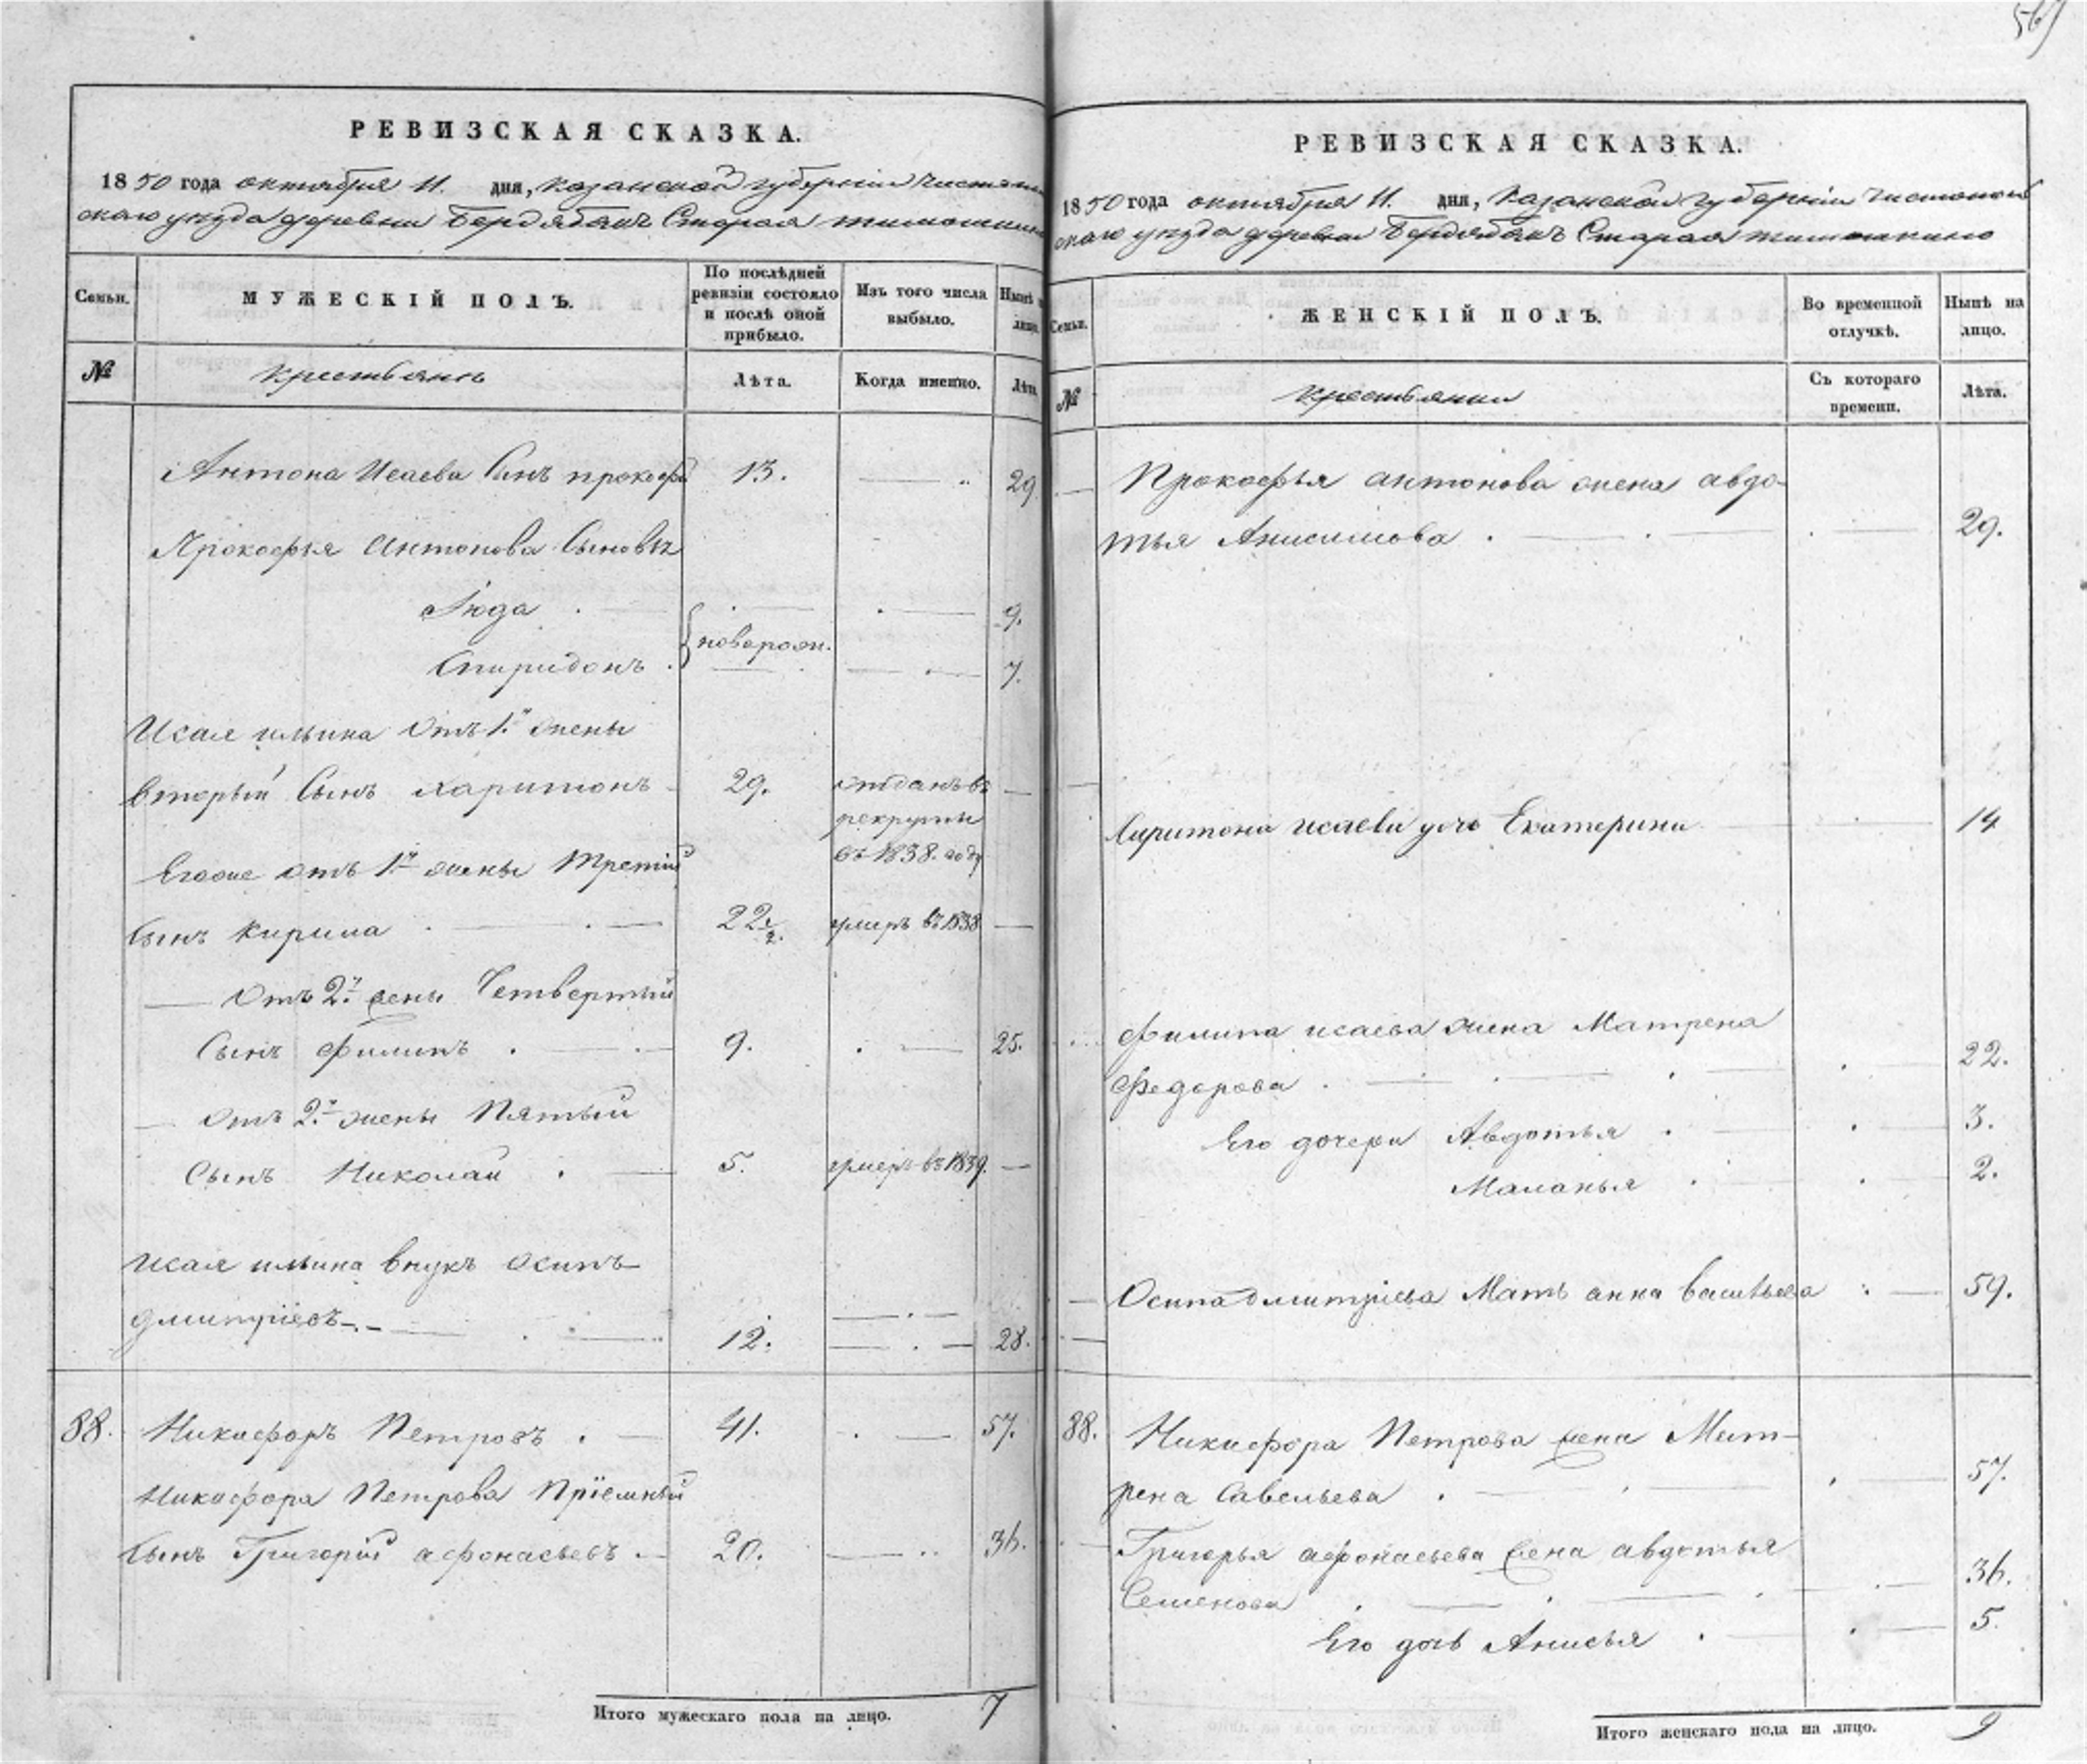 569
РЕВИЗСКАЯ СКАЗКА.
1850 года октября 11. дня, Казанской губернии Чистополь
скаго уезда деревни Бердябякъ Старая тимошкино
Семьи.
МУЖЕСКІЙ ПОЛЪ.
По послѣдней ревизіи состояло и послѣ оной прибыло.
Изъ того числа выбыло.
Нынѣ на лицо.
№
крестьянъ
Лѣта.
Когда именно.
Лѣта.
Антона Исаева Сынъ прокофій 13. 29
Прокофья Антонова Сыновья
Июда 9.
новорож.
Спиридонъ 7.
Исая ильина отъ 1.й жены
вторый Сынъ харитонъ 29. отданъ въ
рекруты
въ 1838. году
Егоже отъ 1й жены третій
Сынъ кирила 22 1/2. умеръ въ 1838
Отъ 2.й жены Четвертый
Сынъ Филипъ 9. 25.
отъ 2.й жены Пятый
Сынъ Николай 5. умеръ въ 1839.
Исая ильина внукъ осипъ
дмитріевъ 12. 28.
88. Никифоръ Петровъ 41. 57.
Никифора Петрова Пріемный
Сынъ Григорій афонасьевъ 20. 36.
Итого мужескаго пола на лицо. 7
РЕВИЗСКАЯ СКАЗКА.
1850 года октября 11. дня, Казанской губерніи Чистополь
скаго уезда деревни Бердябякъ Старая тимошкино
Семьи.
ЖЕНСКІЙ ПОЛЪ.
Во временной отлучкѣ.
Нынѣ на лицо.
№
крестьянки
Съ котораго времени.
Лѣта.
Прокофья антонова жена авдо-
тья Анисимова 29.
Харитона исаева дочь Екатерина 14
Филипа исаева жена Матрена
Федорова 22.
Его дочери Авдотья 3.
Маланья 2.
Осипа дмитріева Мать анна Васильева 59.
88. Никифора Петрова жена Мат-
рена Савельева 57.
Григорья афонасьева жена авдотья
Семенова 36.
Его дочь Анисья 5.
Итого женскаго пола на лицо. 9